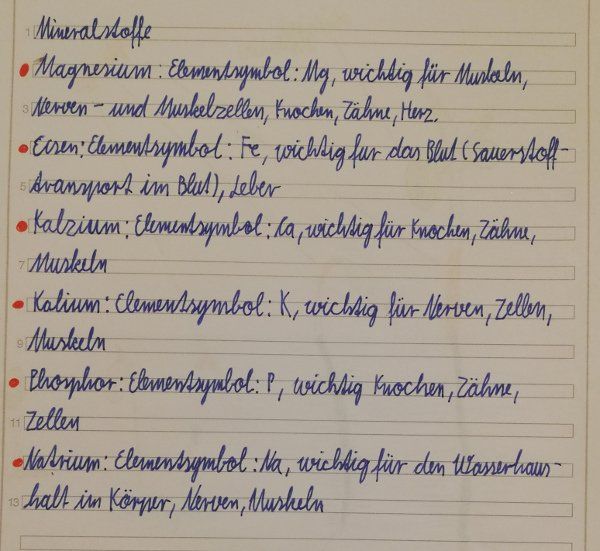 1 Mineralstoffe
Magnesium: Elementsymbol: Mg, wichtig für Muskeln,
3 Nerven- und Muskelzellen, Knochen, Zähne, Herz.
Eisen: Elementsymbol: Fe, wichtig fur das Blut (Sauerstoff-
5 transport im Blut), Leber
Kalzium: Elementsymbol: Ca, wichtig für Knochen, Zähne,
7 Muskeln
Kalium: Elementsymbol: K, wichtig für Nerven, Zellen,
9 Muskeln
Phosphor: Elementsymbol: P, wichtig Knochen, Zähne,
11 Zellen
Natrium: Elementsymbol: Na, wichtig für den Wasserhaus-
13 halt im Körper, Nerven, Muskeln